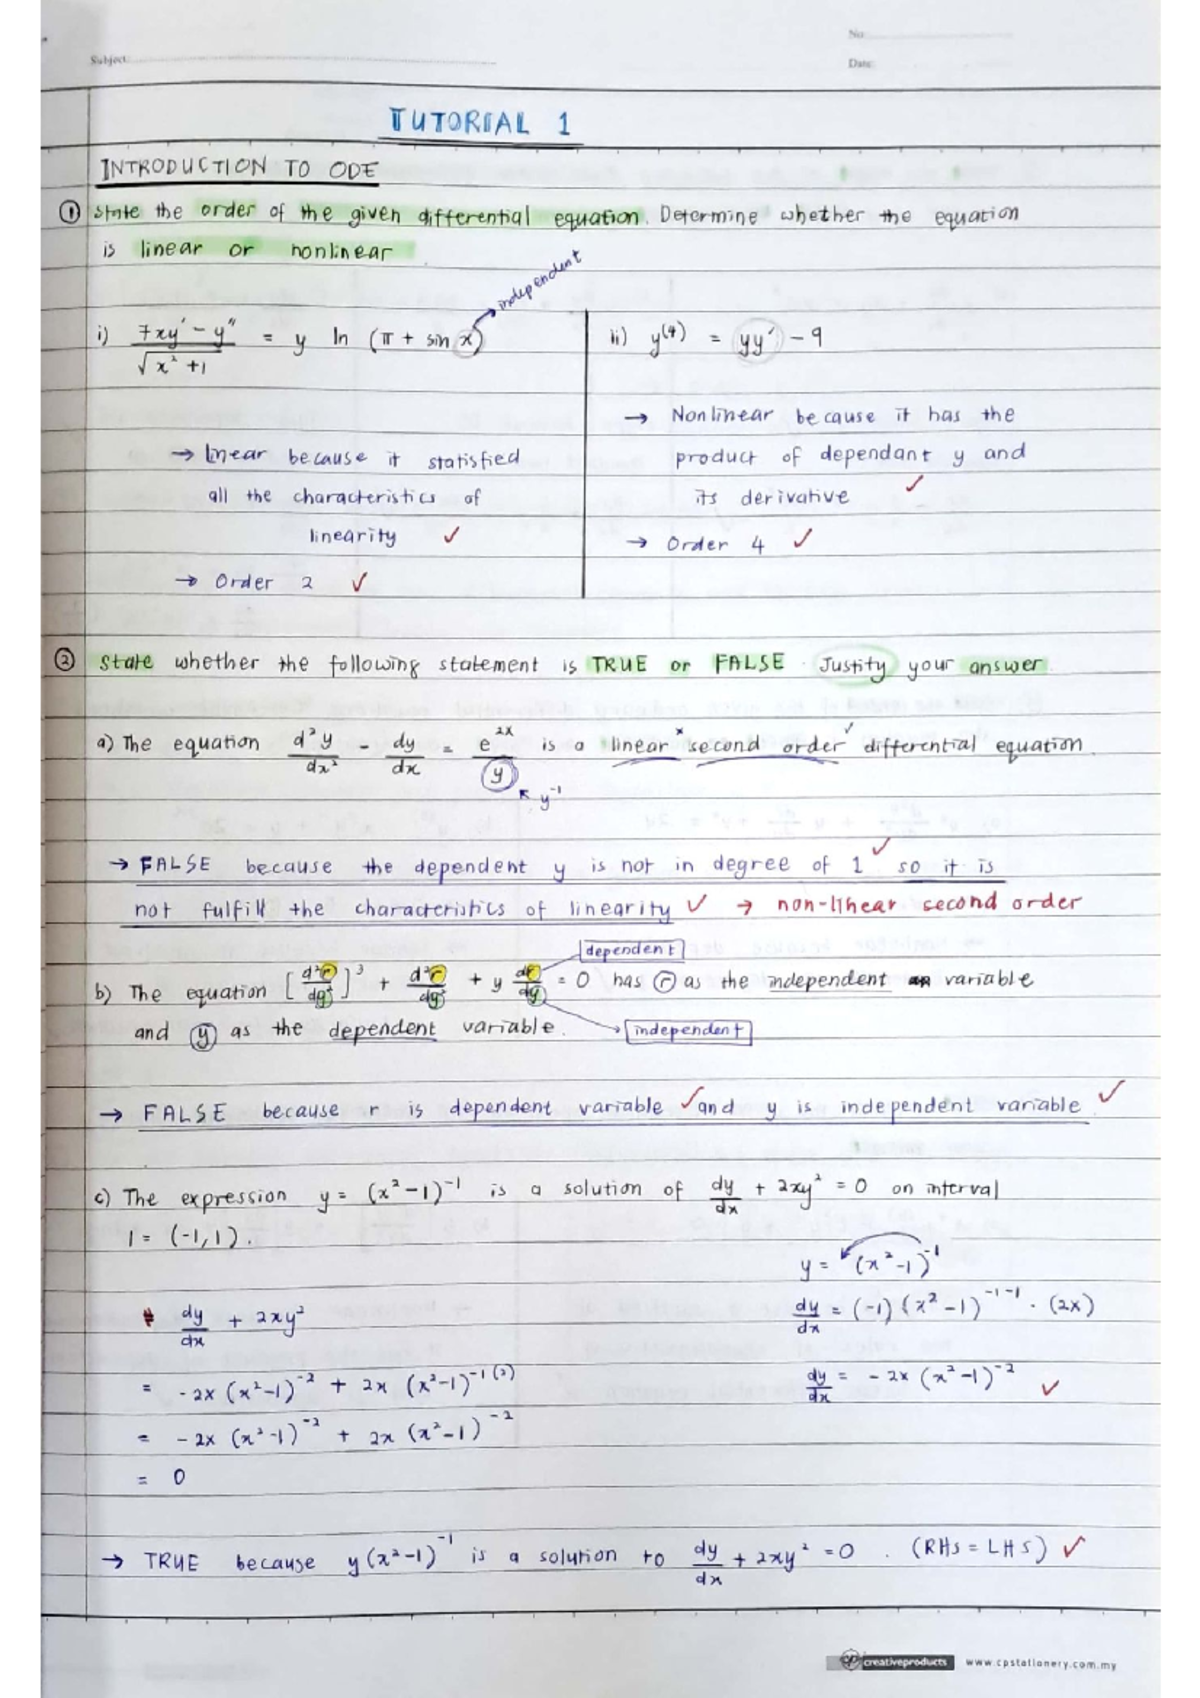 No:
Subject:
Date:
TUTORIAL 1
INTRODUCTION TO ODE
① State the order of the given differential equation. Determine whether the equation
is linear or nonlinear
independent
i) 7xy' - y" / √x² +1 = y ln (π + sin x)
→ linear because it statisfied
all the characteristics of
linearity ✓
→ Order 2 ✓
ii) y(4) = yy' - 9
→ Nonlinear because it has the
product of dependant y and
its derivative ✓
→ Order 4 ✓
② State whether the following statement is TRUE or FALSE. Justify your answer
a) The equation d²y/dx² - dy/dx = e^2x/y is a linear × second order ✓ differential equation.
y⁻¹
→ FALSE because the dependent y is not in degree of 1 ✓ so it is
not fulfill the characteristics of linearity ✓ → non-linear second order
dependent
b) The equation [d²r/dy²]³ + d²r/dy² + y dr/dy = 0 has r as the independent variable
and y as the dependent variable.
independent
→ FALSE because r is dependent variable ✓ and y is independent variable. ✓
c) The expression y = (x² - 1)⁻¹ is a solution of dy/dx + 2xy² = 0 on interval
I = (-1, 1).
y = (x² - 1)⁻¹
dy/dx = (-1) (x² - 1)⁻¹⁻¹ · (2x)
dy/dx = - 2x (x² - 1)⁻² ✓
dy/dx + 2xy²
= - 2x (x² - 1)⁻² + 2x (x² - 1)⁻¹⁽²⁾
= - 2x (x² - 1)⁻² + 2x (x² - 1)⁻²
= 0
→ TRUE because y (x² - 1)⁻¹ is a solution to dy/dx + 2xy² = 0. (RHS = LHS) ✓
cp creativeproducts www.cpstationery.com.my